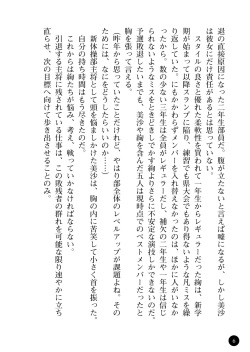 退の直接原因になった二年生部員だ。腹が立たないと言えば嘘になるが、しかし美沙
は彼女にだけ責任があるとは思っていない。
スタイルの良さと優れた柔軟性を買われて、一年生からレギュラーだった絢は、新学
期が始まって以降スランプに陥り、練習でも県大会でもあり得ないような凡ミスを繰
り返していた。にもかかわらずメンバーを入れ替えなかったのは、ほかに人がいなか
ったから。数の少ない三年生は全員がレギュラーだし、補欠の二年生や一年生は信じ
られないようなミスをときどきしでかすため、絢よりさらに不安定な演技しかできない。
予選敗退したいまでも、美沙や絢を含んだ五人は現時点でのベストメンバーだったと
胸を張って言える。
（昨年から思っていたことだけれど、やはり部全体のレベルアップが課題よね。その
ためには、なにをどうしたらいいのか――）
新体操部主将として頭を悩ましかけた美沙は、胸の内に苦笑して小さく首を振った。
自分の持ち時間はもう尽きた。
これからは絢たちが悩み、考え、戦っていかなければならない。
引退する主将に残された仕事は、この敗残者の群れを可能な限り速やかに立ち
直らせ、次の目標へ向けて歩き出させることのみ。
6